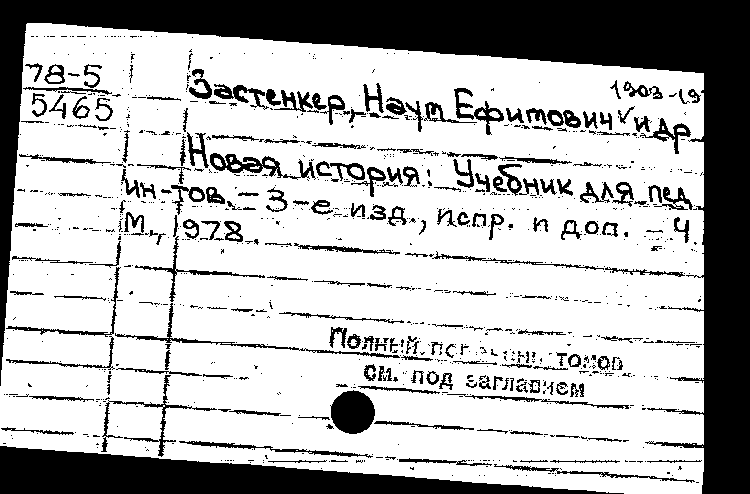 78-5
5465
1903-19
Застенкер, Наум Ефимович и др
Новая история: Учебник для пед
ин-тов. – 3-е изд., испр. и доп. – Ч.
М., 1978.
Полный перечень томов
см. под заглавием